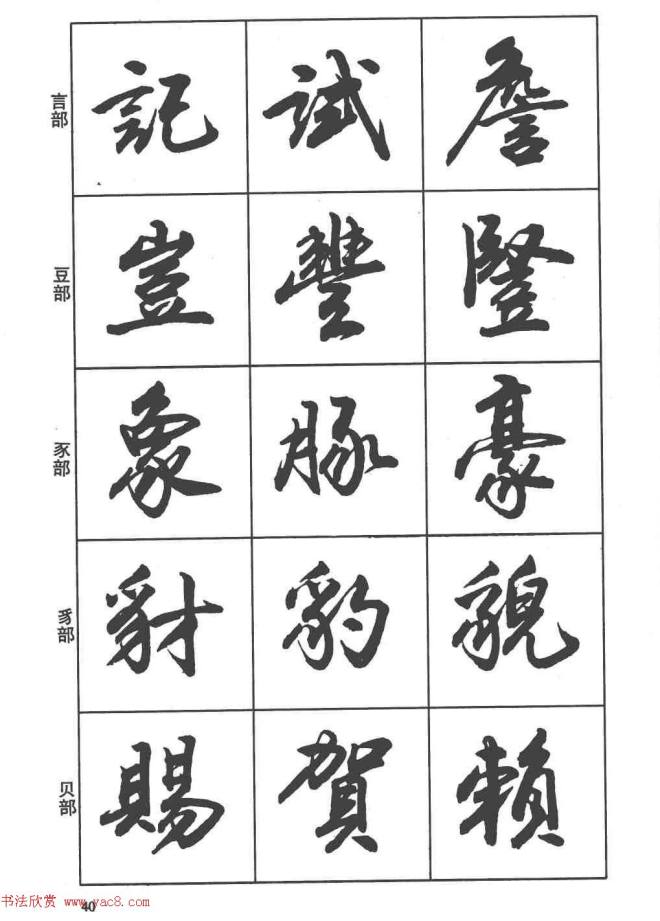 言部 記 試 詹
豆部 豈 豐 豎
豕部 象 豚 豪
豸部 豺 豹 貌
贝部 賜 賀 賴
书法欣赏 www.yac8.com
40